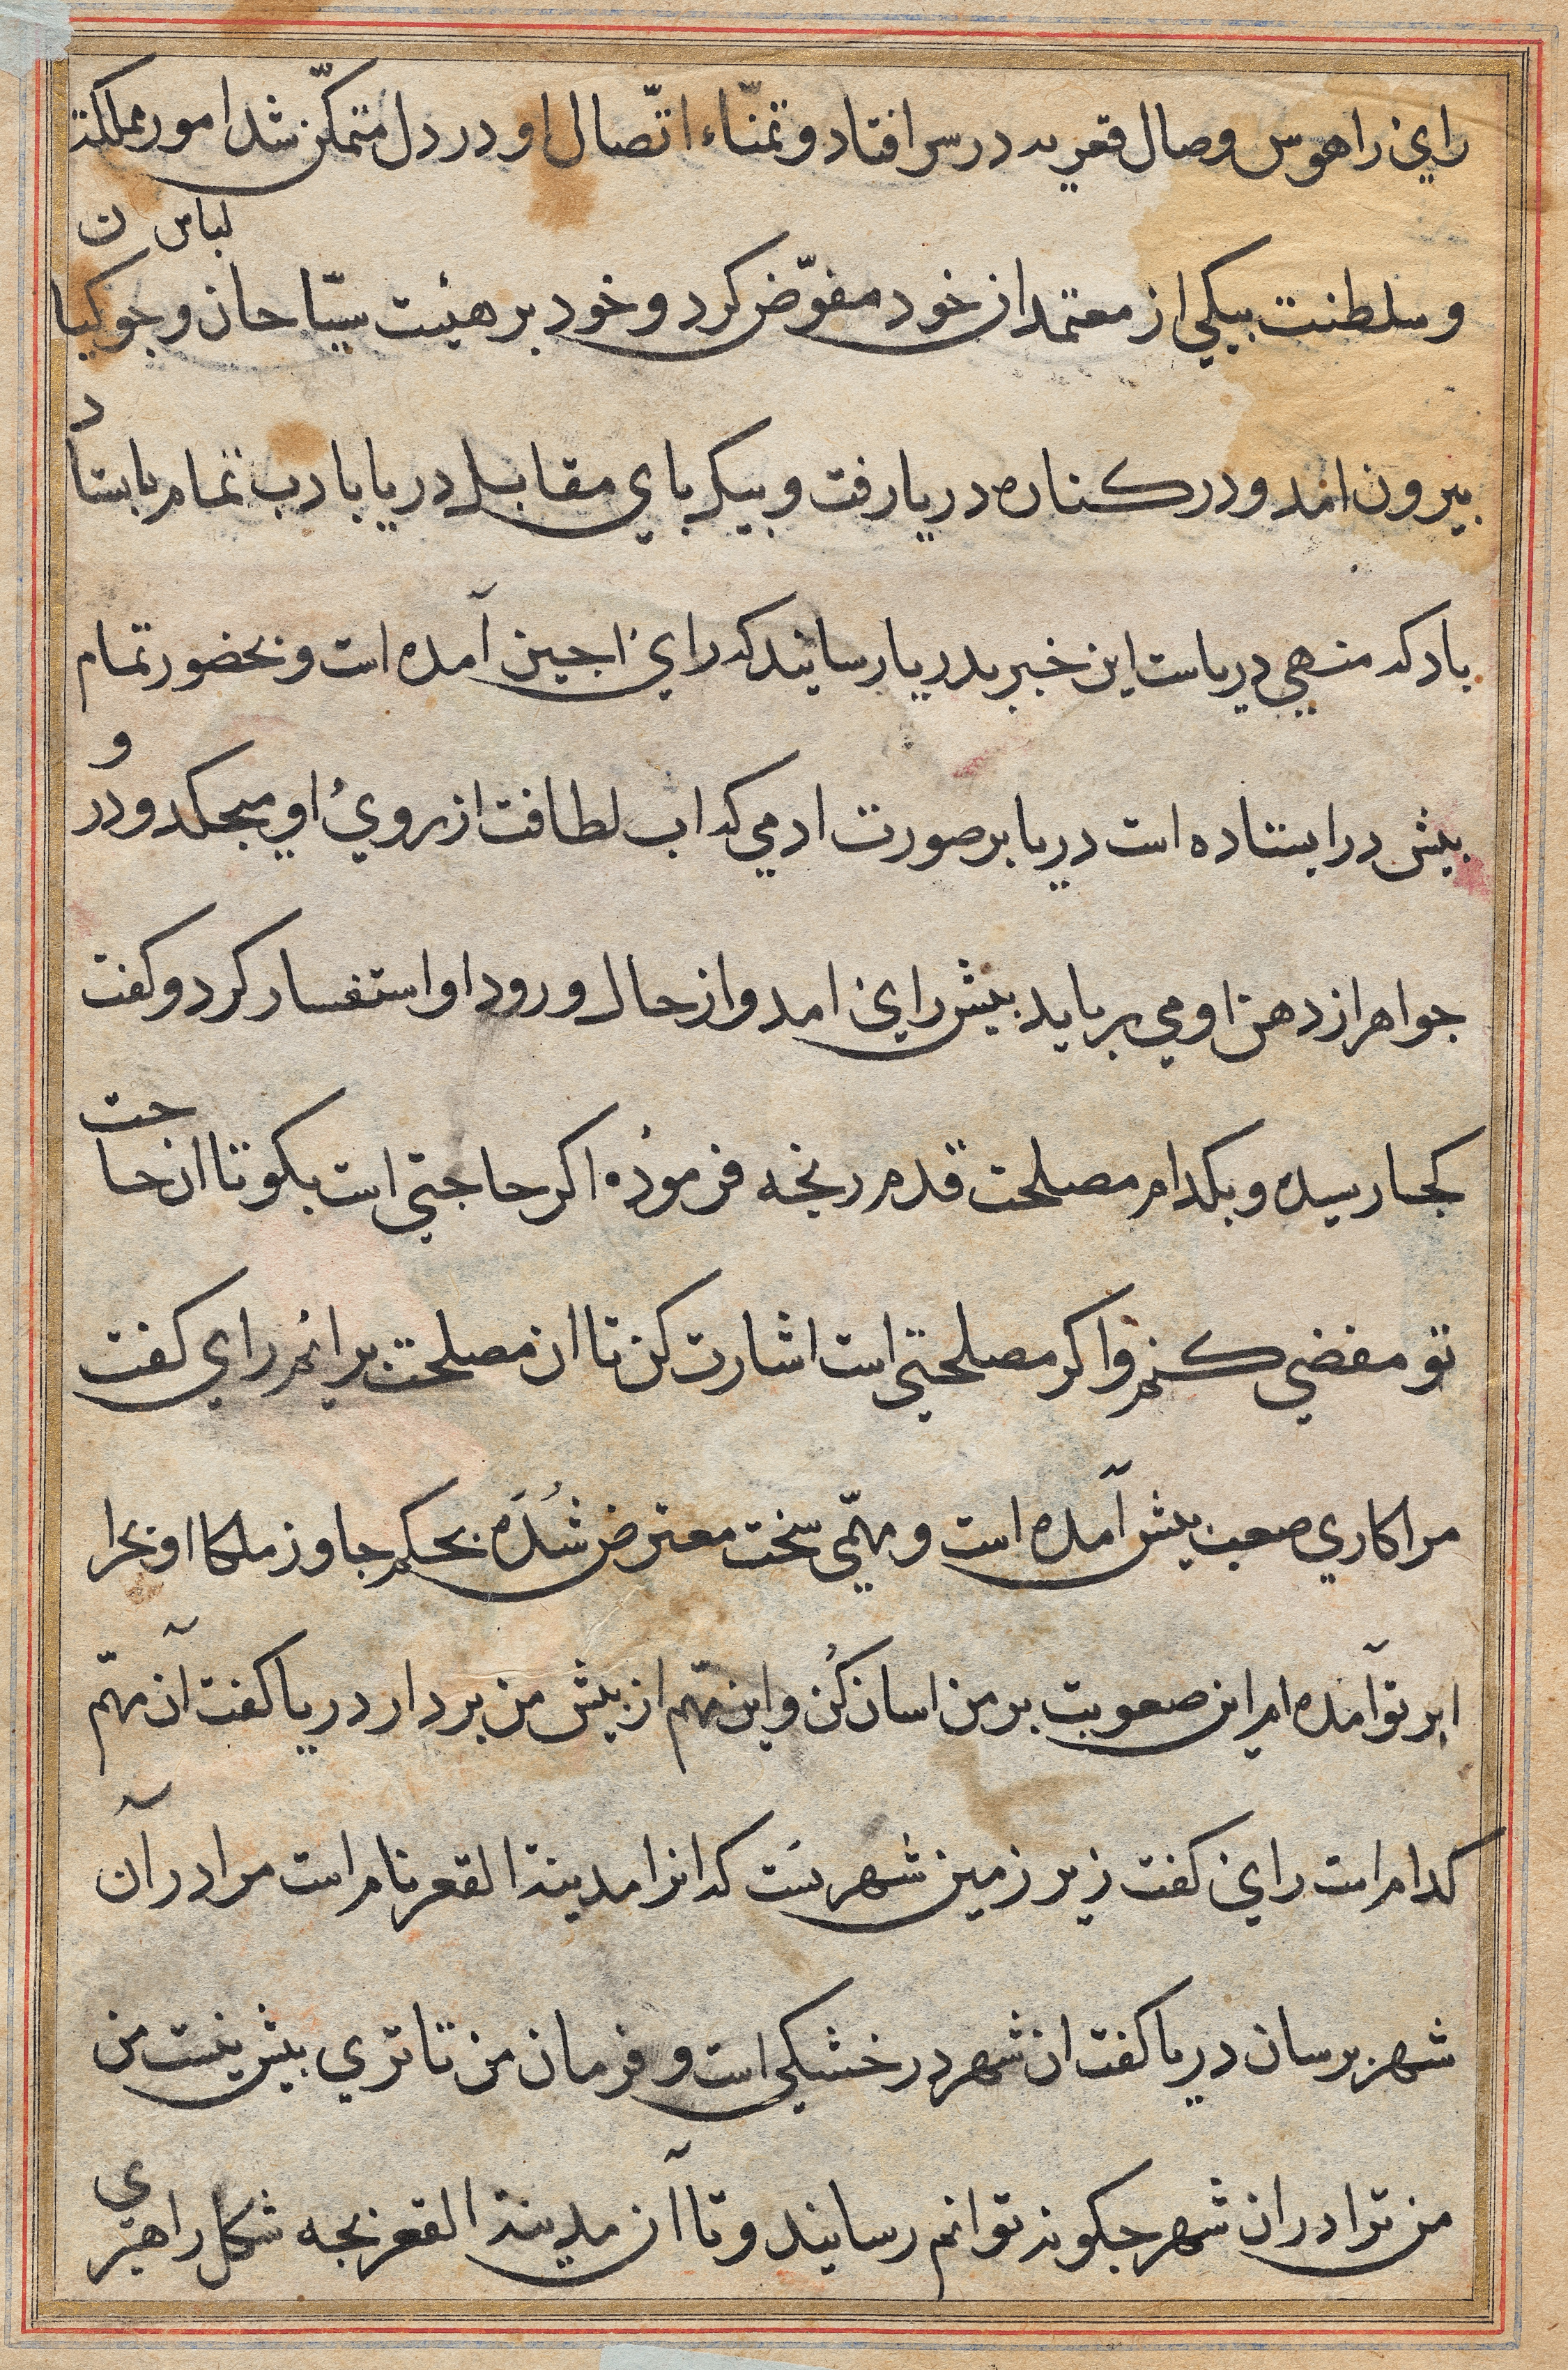 راي را هوس وصال قعریه در سر افتاد و تمنّاء اتّصال او در دل متمکّن شد امور مملکت
و سلطنت بیکي از معتمدان خود مفوّض کرد و خود بر هیئت سیّاحان و جوکیان لباس
بیرون امد و در کناره دریا رفت و بیکر بای مقابل دریا با دب تمام باستاد
باد که منهي دریاست این خبر بدریا رسانید که راي اجین آمده است و بحضور تمام
بیش در ایستاده است دریا بر صورت ادمي که اب لطافت از روي او میجکد و در و
جواهر از دهن او مي برباید بیش راي امد و از حال ورود او استفسار کرد و کفت
کجا رسیده و بکدام مصلحت قدم رنجه فرموده اکر حاجتي است بکو تا ان حاجت
تو مفضي کنم و اکر مصلحتي است اشارت کن تا ان مصلحت برانم راي کفت
مرا کاري صعب بیش آمده است و مهمّي سخت معترض شده بحکم جاور ملکا او بحرا
ابر تو آمده ام این صعوبت بر من اسان کن و این مهّم از بیش من بردار دریا کفت آن مهّم
کدام است راي کفت زیر زمین شهریست که انرا مدینة القعر نام است مرا در آن
شهر برسان دریا کفت ان شهر در خشکي است و فرمان من تا تري بیش نیست من
من ترا در ان شهر جکونه توانم رسانید و تا آن مدینة القعر بجه شکل راهبري